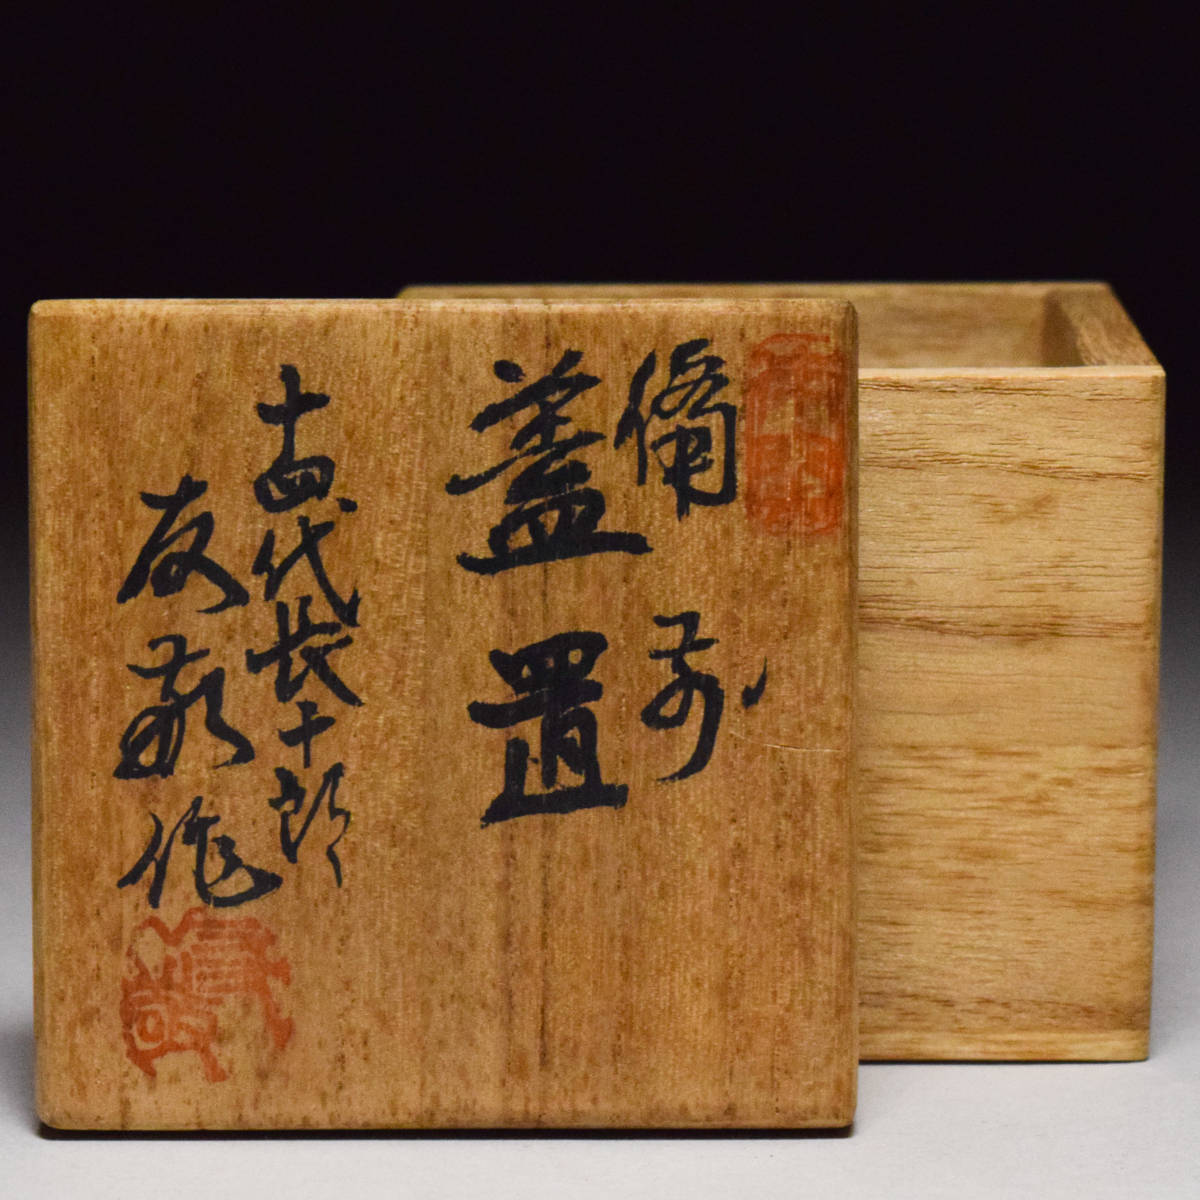 備前
蓋置
十四代長十郎
友敬作